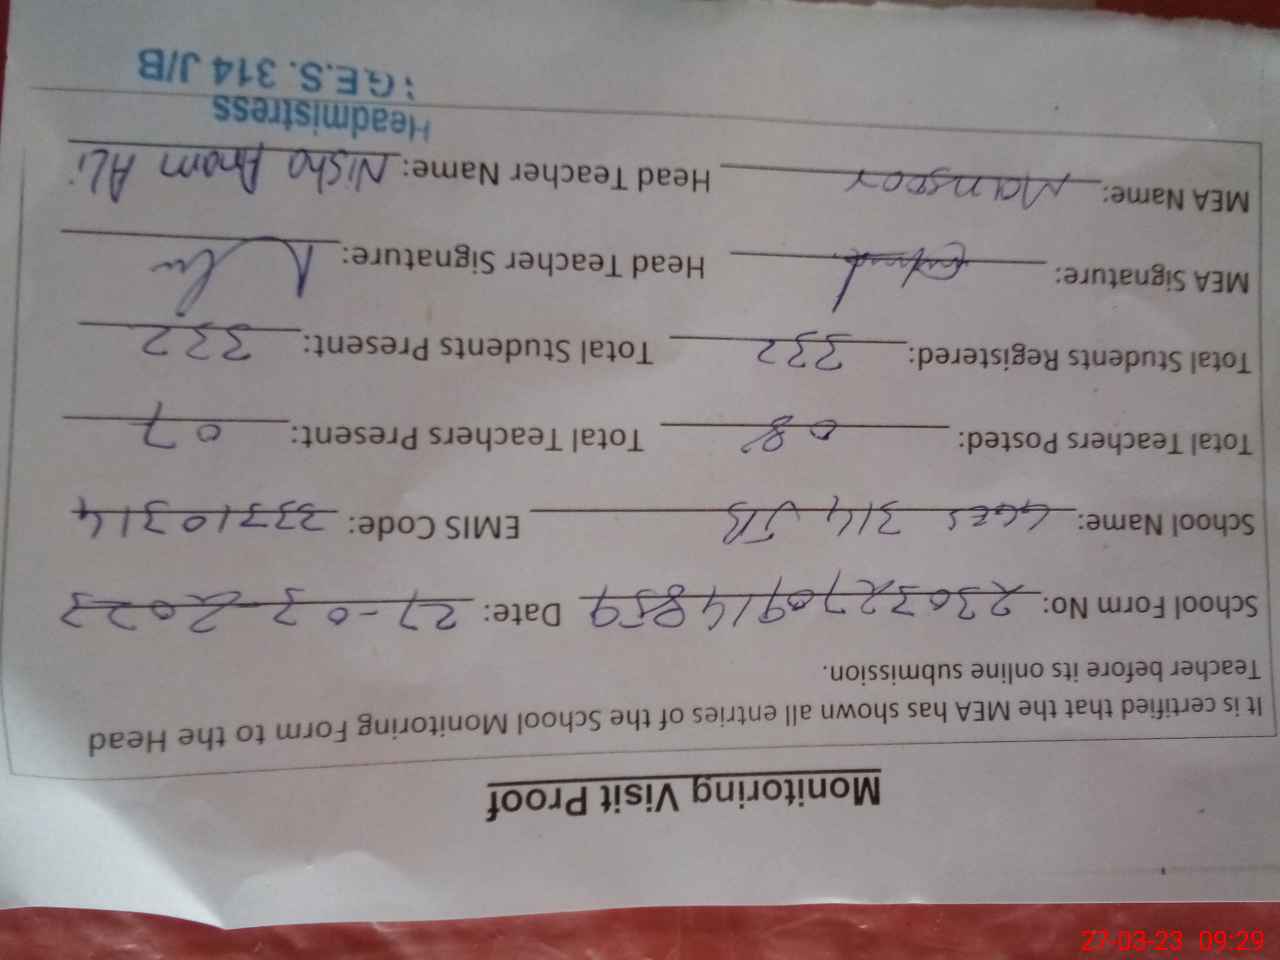 Monitoring Visit Proof
It is certified that the MEA has shown all entries of the School Monitoring Form to the Head
Teacher before its online submission.
School Form No: 2303270914859 Date: 27-03-2023
School Name: GGES 314 JB EMIS Code: 33310314
Total Teachers Posted: 08 Total Teachers Present: 07
Total Students Registered: 332 Total Students Present: 332
MEA Signature: Head Teacher Signature:
MEA Name: Mansoor Head Teacher Name: Nisho Anam Ali
Headmistress
G.E.S. 314 J/B
27-03-23 09:29